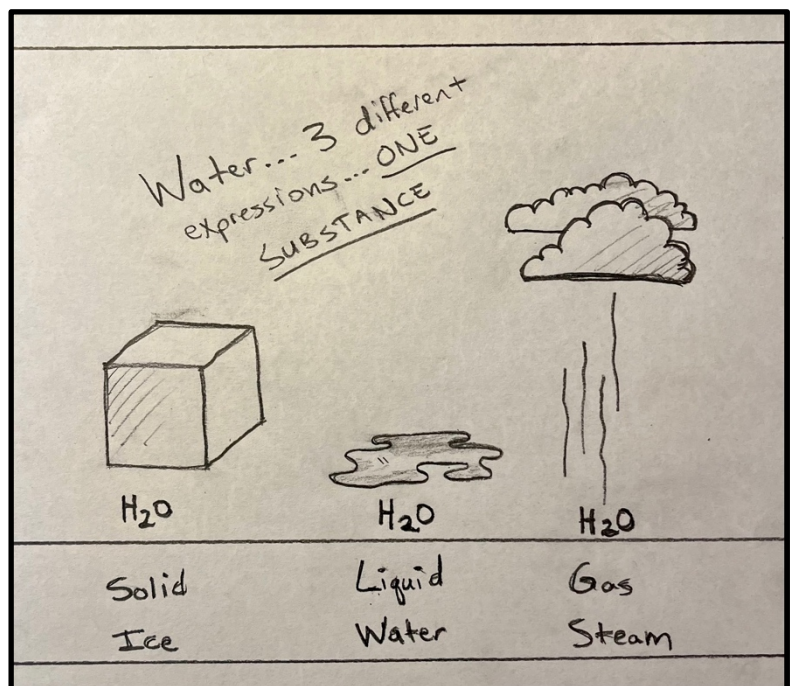 Water... 3 different
expressions... ONE
SUBSTANCE
H₂O H₂O H₂O
Solid Liquid Gas
Ice Water Steam